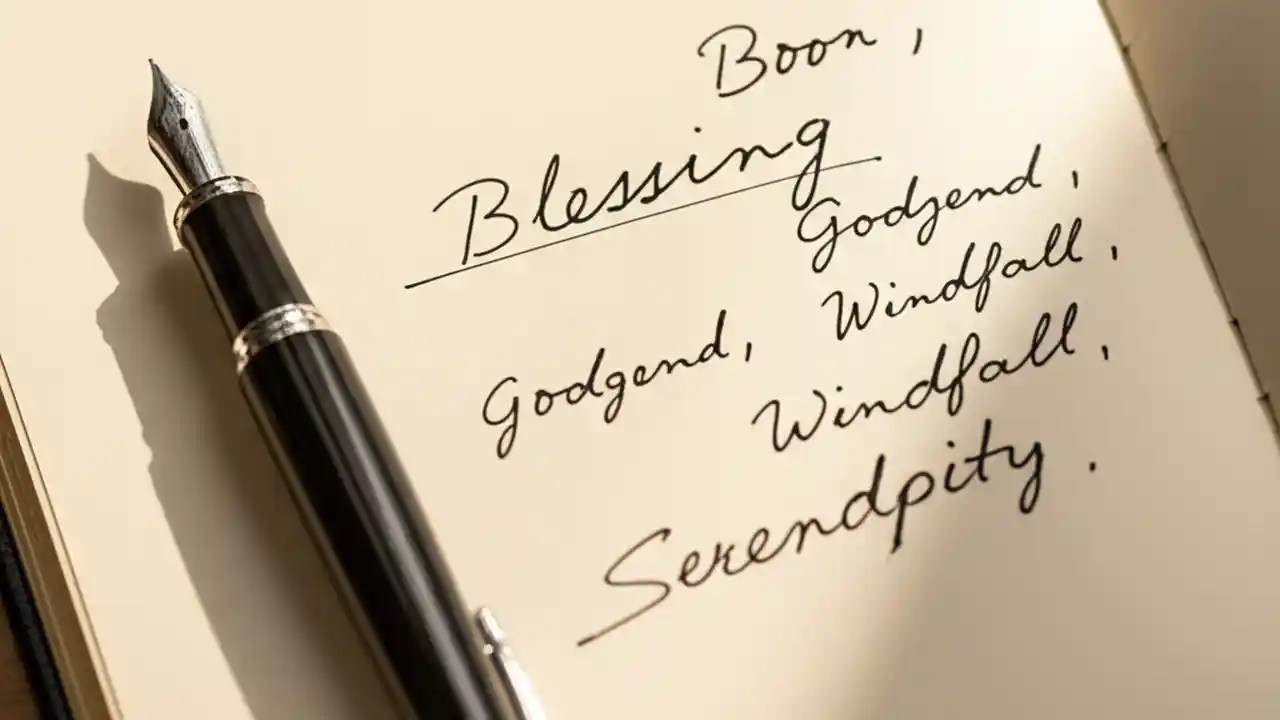 Boon,
Blessing
Godgend,
Godgend, Windfall,
Windfall,
Serendpity.